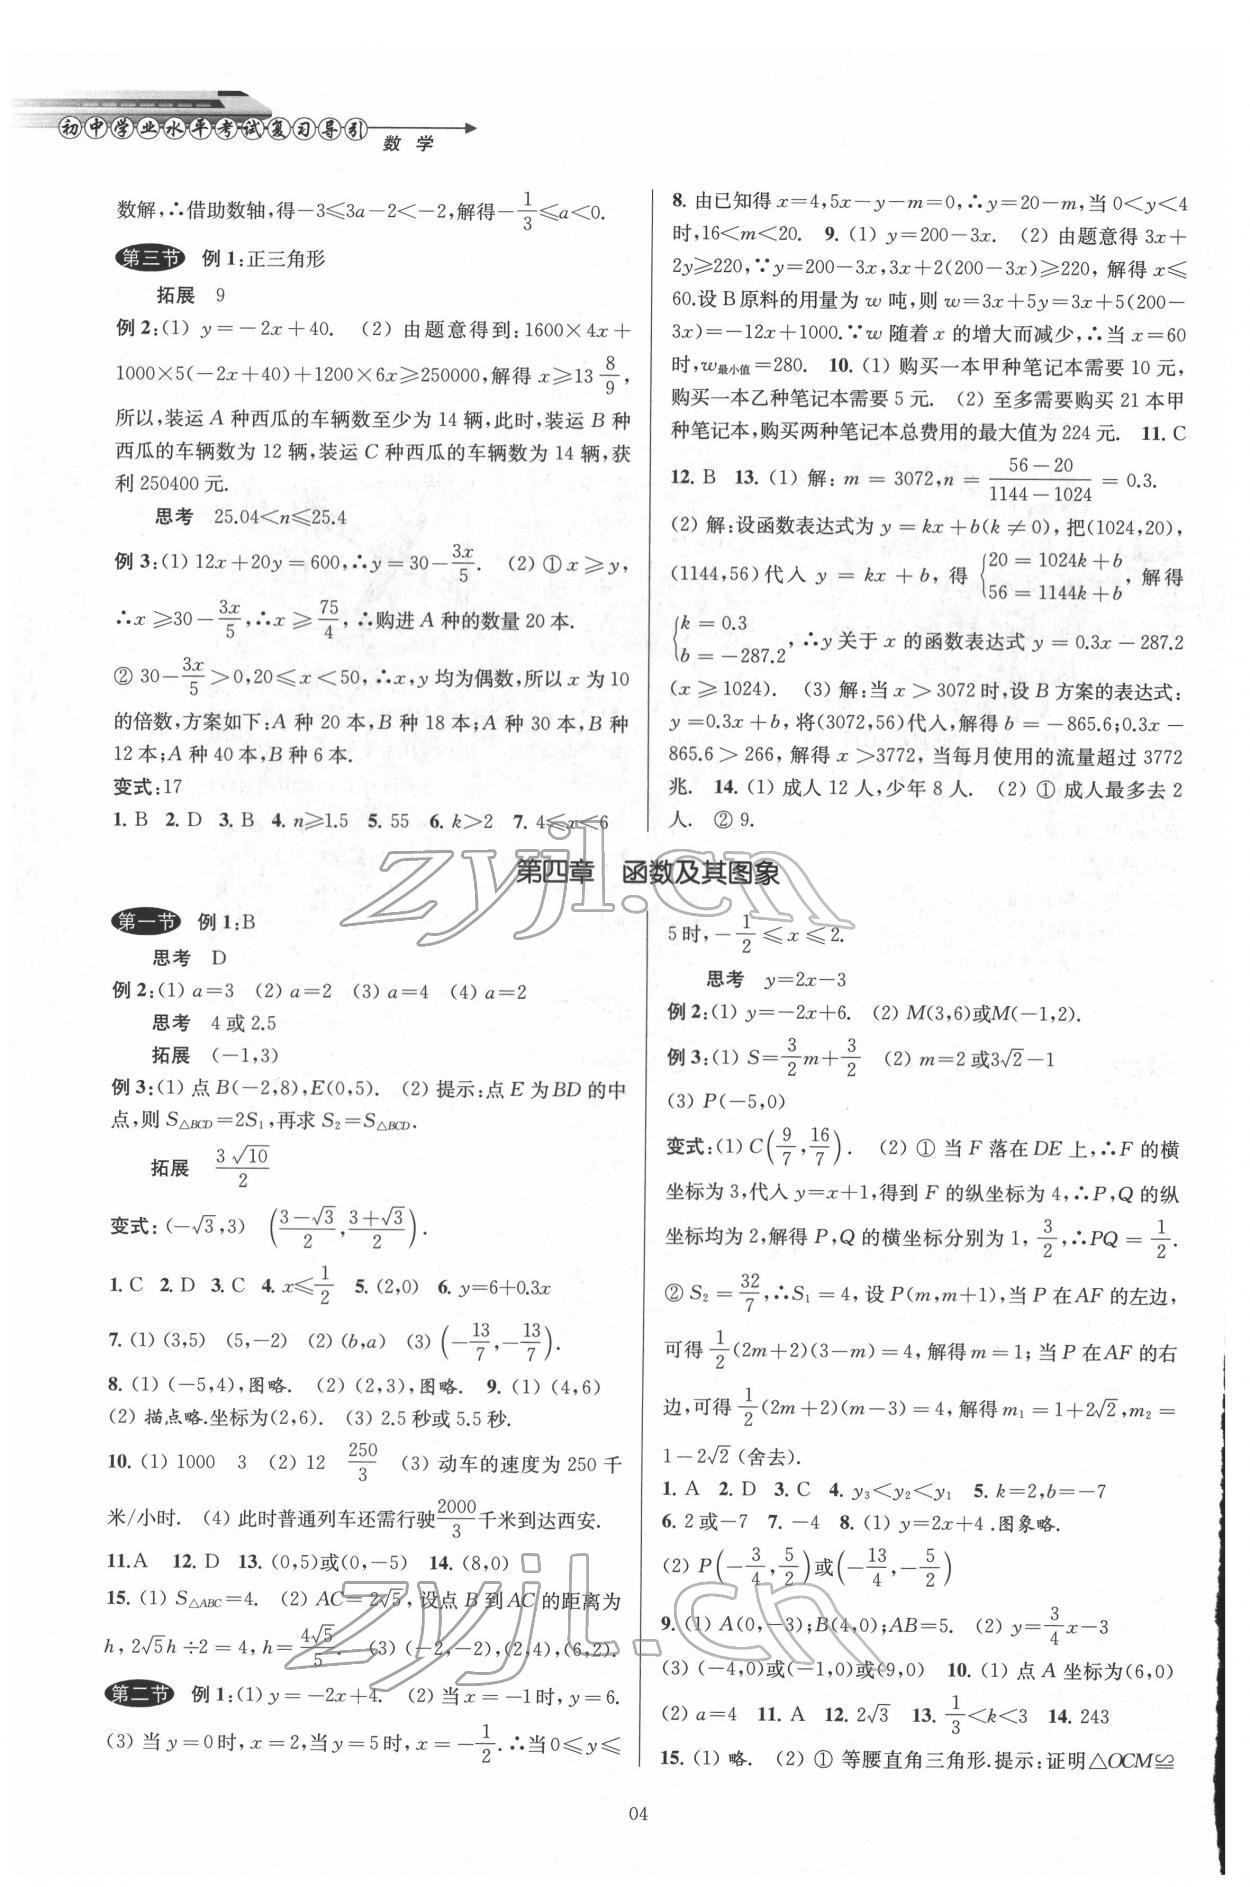 初中学业水平考试复习导引
数 学
数解,∴借助数轴,得-3≤3a-2<-2,解得-1/3≤a<0.
第三节 例1:正三角形
拓展 9
例2:(1) y=-2x+40. (2) 由题意得到:1600×4x+
1000×5(-2x+40)+1200×6x≥250000,解得 x≥13 8/9,
所以,装运 A 种西瓜的车辆数至少为 14 辆,此时,装运 B 种
西瓜的车辆数为 12 辆,装运 C 种西瓜的车辆数为 14 辆,获
利 250400 元.
思考 25.04<n≤25.4
例3:(1) 12x+20y=600,∴y=30-3x/5. (2) ①x≥y,
∴x≥30-3x/5,∴x≥75/4,∴购进 A 种的数量 20 本.
② 30-3x/5>0,20≤x<50,∴x,y 均为偶数,所以 x 为 10
的倍数,方案如下:A 种 20 本,B 种 18 本;A 种 30 本,B 种
12 本;A 种 40 本,B 种 6 本.
变式:17
1. B 2. D 3. B 4. n≥1.5 5. 55 6. k>2 7. 4≤x≤6
8. 由已知得 x=4,5x-y-m=0,∴y=20-m,当 0<y<4
时,16<m<20. 9. (1) y=200-3x. (2) 由题意得 3x+
2y≥220,∵y=200-3x,3x+2(200-3x)≥220,解得 x≤
60.设 B 原料的用量为 w 吨,则 w=3x+5y=3x+5(200-
3x)=-12x+1000.∵w 随着 x 的增大而减少,∴当 x=60
时,w最小值=280. 10. (1) 购买一本甲种笔记本需要 10 元,
购买一本乙种笔记本需要 5 元. (2) 至多需要购买 21 本甲
种笔记本,购买两种笔记本总费用的最大值为 224 元. 11. C
12. B 13. (1) 解:m=3072,n=(56-20)/(1144-1024)=0.3.
(2) 解:设函数表达式为 y=kx+b(k≠0),把(1024,20),
(1144,56)代入 y=kx+b,得 {20=1024k+b 56=1144k+b,解得
{k=0.3 b=-287.2,∴y 关于 x 的函数表达式 y=0.3x-287.2
(x≥1024). (3) 解:当 x>3072 时,设 B 方案的表达式:
y=0.3x+b,将(3072,56)代入,解得 b=-865.6;0.3x-
865.6>266,解得 x>3772,当每月使用的流量超过 3772
兆. 14. (1) 成人 12 人,少年 8 人. (2) ① 成人最多去 2
人. ② 9.
第四章 函数及其图象
第一节 例1:B
思考 D
例2:(1) a=3 (2) a=2 (3) a=4 (4) a=2
思考 4 或 2.5
拓展 (-1,3)
例3:(1) 点 B(-2,8),E(0,5). (2) 提示:点 E 为 BD 的中
点,则 S△BCD=2S₁,再求 S₂=S△BCD.
拓展 3√10/2
变式:(-√3,3) ((3-√3)/2,(3+√3)/2).
1. C 2. D 3. C 4. x≤1/2 5. (2,0) 6. y=6+0.3x
7. (1) (3,5) (5,-2) (2) (b,a) (3) (-13/7,-13/7).
8. (1) (-5,4),图略. (2) (2,3),图略. 9. (1) (4,6)
(2) 描点略.坐标为(2,6). (3) 2.5 秒或 5.5 秒.
10. (1) 1000 3 (2) 12 250/3 (3) 动车的速度为 250 千
米/小时. (4) 此时普通列车还需行驶2000/3千米到达西安.
11.A 12. D 13. (0,5)或(0,-5) 14. (8,0)
15. (1) S△ABC=4. (2) AC=2√5,设点 B 到 AC 的距离为
h,2√5h÷2=4,h=4√5/5. (3) (-2,-2),(2,4),(6,2).
第二节 例1:(1) y=-2x+4. (2) 当 x=-1 时,y=6.
(3) 当 y=0 时,x=2,当 y=5 时,x=-1/2.∴当 0≤y≤
5 时,-1/2≤x≤2.
思考 y=2x-3
例2:(1) y=-2x+6. (2) M(3,6)或M(-1,2).
例3:(1) S=3/2m+3/2 (2) m=2 或3√2-1
(3) P(-5,0)
变式:(1) C(9/7,16/7). (2) ① 当 F 落在 DE 上,∴F 的横
坐标为 3,代入 y=x+1,得到 F 的纵坐标为 4,∴P,Q 的纵
坐标均为 2,解得 P,Q 的横坐标分别为 1,3/2,∴PQ=1/2.
② S₂=32/7,∴S₁=4,设 P(m,m+1),当 P 在 AF 的左边,
可得1/2(2m+2)(3-m)=4,解得 m=1;当 P 在 AF 的右
边,可得1/2(2m+2)(m-3)=4,解得 m₁=1+2√2,m₂=
1-2√2 (舍去).
1. A 2. D 3. C 4. y₃<y₂<y₁ 5. k=2,b=-7
6. 2 或-7 7. -4 8. (1) y=2x+4 .图象略.
(2) P(-3/4,5/2)或(-13/4,-5/2)
9. (1) A(0,-3);B(4,0);AB=5. (2) y=3/4x-3
(3) (-4,0)或(-1,0)或(9,0) 10. (1) 点 A 坐标为(6,0)
(2) a=4 11. A 12. 2√3 13. 1/3<k<3 14. 243
15. (1) 略. (2) ① 等腰直角三角形.提示:证明△OCM≌
04
zyjl.cn
zyjl.cn